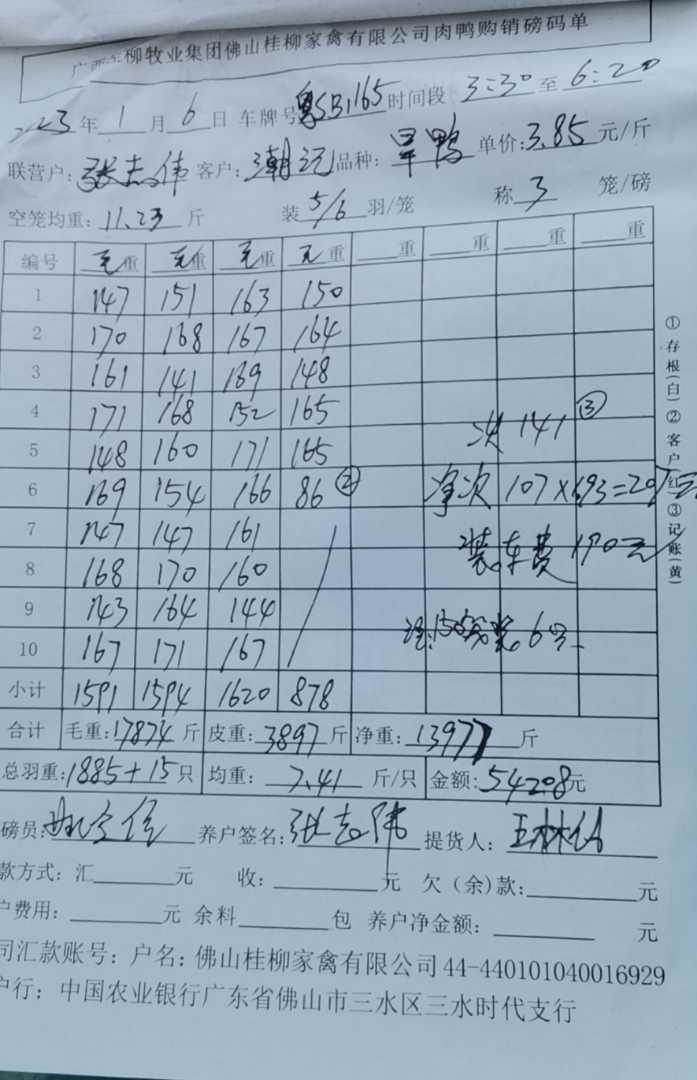 柳牧业集团佛山桂柳家禽有限公司肉鸭购销磅码单
2023年1月6日 车牌号 时间段 3:30 至 6:20
联营户:张志伟 客户:潮记 品种:旱鸭 单价:3.85元/斤
空笼均重:11.23斤 装5/6羽/笼 称3笼/磅
编号 毛重 毛重 毛重 毛重 重 重 重 重
1 147 151 163 150
2 170 168 167 164
3 161 141 169 148
4 171 168 152 165 次 141 ③
5 148 160 171 165
6 169 154 166 86 ② 净次 107×
7 147 147 161 装车费 170元
8 168 170 160
9 143 164 144
10 167 171 167
小计 1591 1594 1620 878
合计 毛重:17874斤 皮重:3897斤 净重:13977斤
总羽重:1885+15只 均重:7.41斤/只 金额:54208元
磅员: 养户签名:张志伟 提货人:
款方式:汇 元 收: 元 欠(余)款: 元
户费用: 元 余料 包 养户净金额: 元
司汇款账号:户名:佛山桂柳家禽有限公司 44-440101040016929
户行:中国农业银行广东省佛山市三水区三水时代支行
①存根(白)②客户(红)③记账(黄)